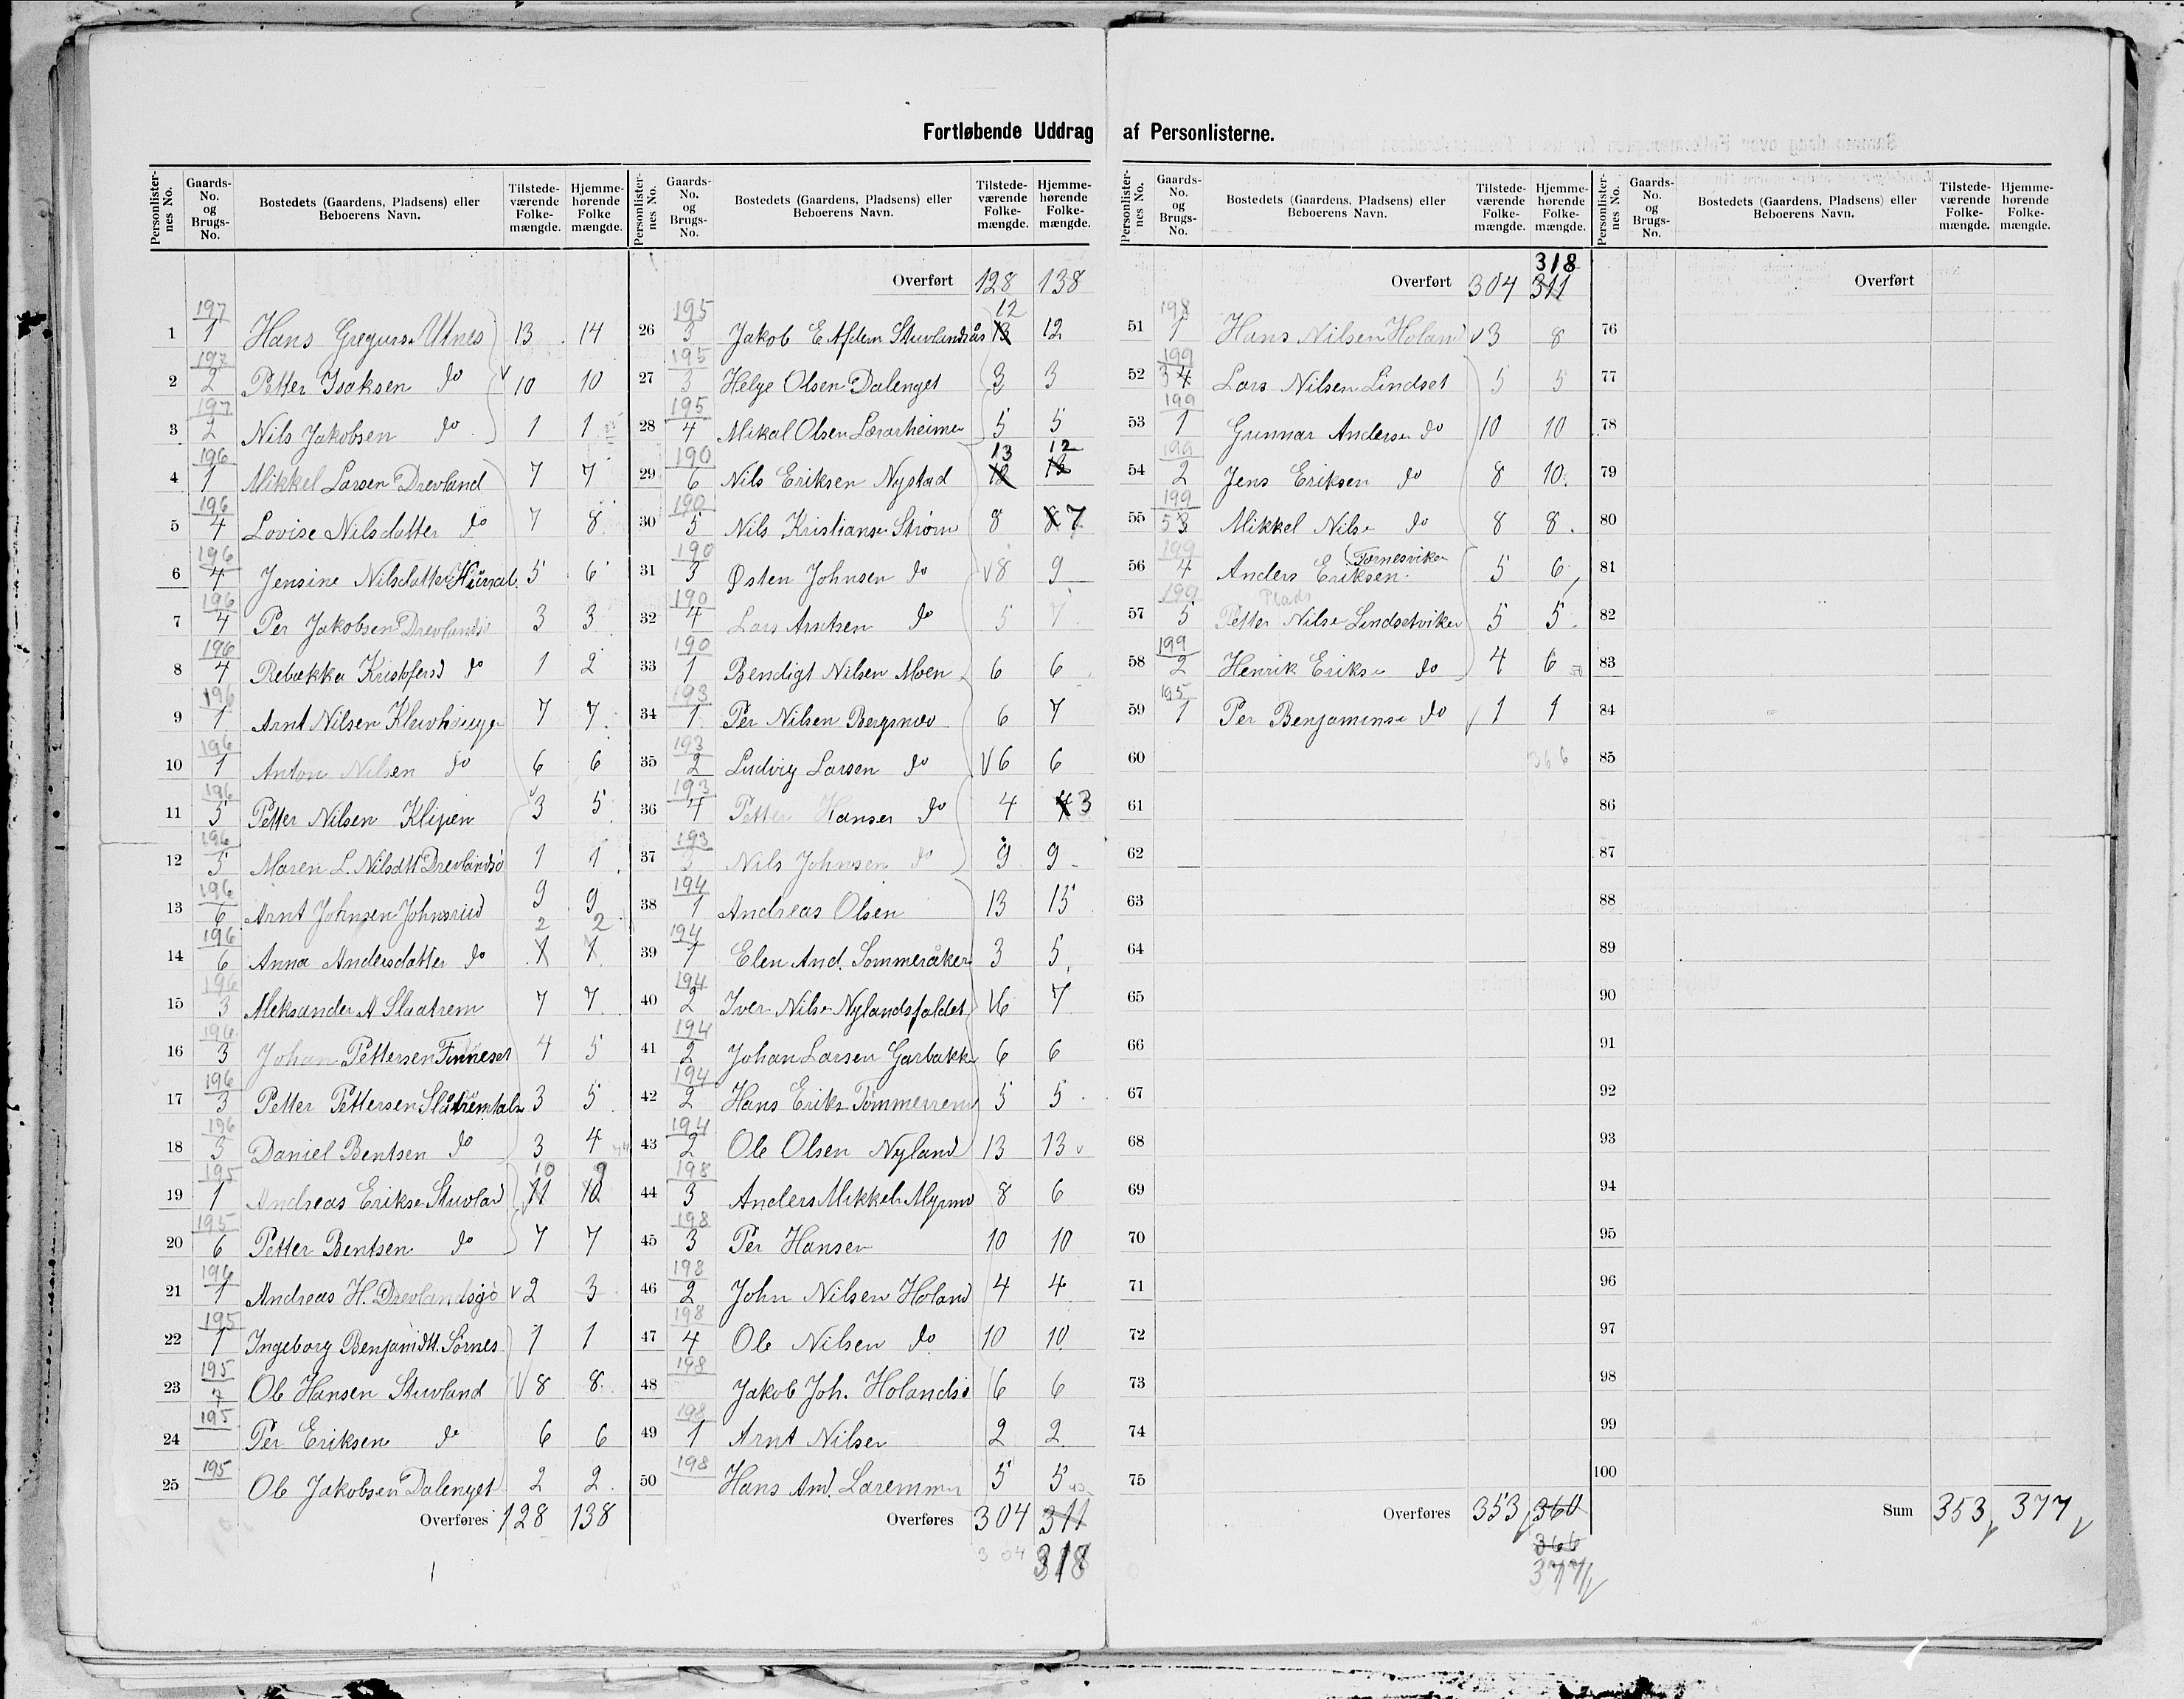 Fortløbende Uddrag af Personlisterne.
Personlisternes No. Gaards-No. og Brugs-No. Bostedets (Gaardens, Pladsens) eller Beboerens Navn. Tilstedeværende Folkemængde. Hjemmehørende Folkemængde.
1 197/1 Hans Greguss. Utnes 13 14
2 197/2 Petter Isaksen do 10 10
3 197/2 Nils Jakobsen do 1 1
4 196/1 Mikkel Larsen Drevland 7 7
5 196/4 Lovise Nilsdatter do 7 8
6 196/4 Jensine Nilsdatter 5 6
7 196/4 Per Jakobsen Drevlandsjø 3 3
8 196/4 Rebekka Kristofersd do 1 2
9 196/1 Arnt Nilsen Kleivhauge 7 7
10 196/1 Anton Nilsen do 6 6
11 196/5 Petter Nilsen Klipen 3 5
12 196/5 Maren L. Nilsdtt Drevlandsjø 1 1
13 196/6 Arnt Johnsen Johnsrud 9 9
2 2
14 196/6 Anna Andersdatter do 1 1
15 196/3 Aleksander A Slaatrem 7 7
16 196/3 Johan Pettersen Finneset 4 5
17 196/3 Petter Pettersen 3 5
18 196/3 Daniel Bentsen do 3 4
10 9
19 195/1 Andreas Erikse Stuvland 11 10
20 195/6 Petter Bentsen do 7 7
21 196/1 Andreas H. Drevlandsjø 2 3
22 195/1 Ingeborg Benjamdtt. Sørnes 1 1
23 195/7 Ole Hansen Stuvland 8 8
24 195 Per Eriksen do 6 6
25 195 Ole Jakobsen Dalenget 2 2
Overføres 128 138
Overført 128 138
12
26 195/3 Jakob E 13 12
27 195/3 Helge Olsen Dalenget 3 3
28 195/4 Mikal Olsen 5 5
13 12
29 190/6 Nils Eriksen Nystad
30 190/5 Nils Kristianse Strøm 8 8 7
31 190/3 Østen Johnsen do 8 9
32 190/4 Lars Arntsen do 5 7
33 190/1 Bendigt Nilsen Moen 6 6
34 193/1 Per Nilsen Bergsnov 6 7
35 193/2 Ludvig Larsen do 6 6
36 193/4 Petter Hansen do 4 4 3
37 193 Nils Johnsen do 9 9
38 194/1 Andreas Olsen 13 15
39 194/1 Elen And. Sommeråker 3 5
40 194/2 Iver Nilse Nylandsfaldet 6 7
41 194/2 Johan Larsen Garbakk 6 6
42 194/2 Hans Eriks 5 5
43 194/2 Ole Olsen Nyland 13 13
44 198/3 Anders Mikkels Myrmo 8 6
45 198/3 Per Hansen 10 10
46 198/2 John Nilsen Holand 4 4
47 198/4 Ole Nilsen do 10 10
48 198 Jakob Joh. Holandsjø 6 6
49 198/1 Arnt Nilsen 2 2
50 198 Hans And. 5 5
Overføres 304 311
304 318
318
Overført 304 311
51 198/1 Hans Nilsen Holand 3 8
52 199/3 4 Lars Nilsen Lindset 5 5
53 199/1 Gunnar Anderse do 10 10
54 199/2 Jens Eriksen do 8 10
55 199/5 3 Mikkel Nilse do 8 8
56 199/4 Anders Eriksen (Tørnesviken 5 6
Plads
57 199/5 Petter Nilse Lindsetviken 5 5
58 199/2 Henrik Erikse do 4 6
59 195/1 Per Benjaminse do 1 1
60 366
61
62
63
64
65
66
67
68
69
70
71
72
73
74
75
Overføres 353 360
366
377
Overført
76
77
78
79
80
81
82
83
84
85
86
87
88
89
90
91
92
93
94
95
96
97
98
99
100
Sum 353 377